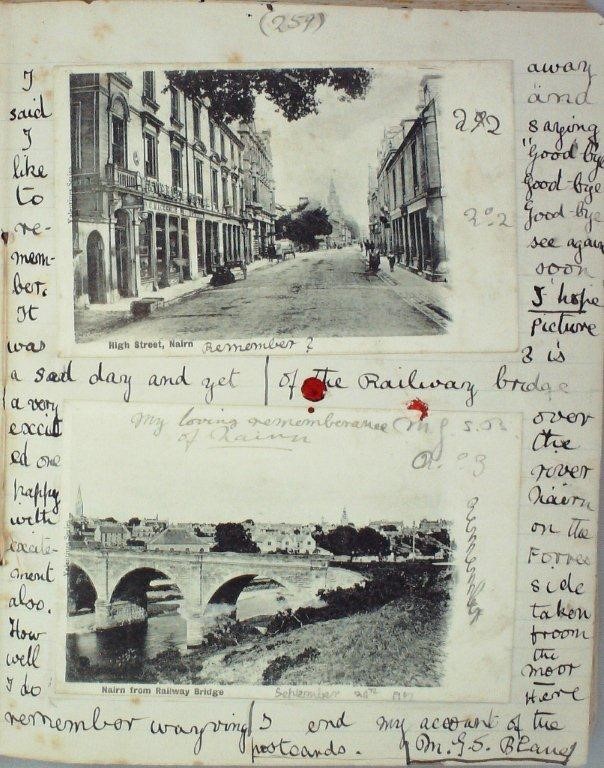 (259)
I
said
I
like
to
re-
mem-
ber.
It
was
a sad day and yet
a very
excit
ed one
happy
with
excite-
ment
also.
How
well
I do
remember wayving
away
and
saying
"Good bye
Good-bye
Good-bye
see again
soon
I hope
Picture
3 is
of the Railway bridge
over
the
rover
Nairn
on the
Forres
side
taken
froom
the
moor
Here
I end my account of the
postcards. M.G.S. Blane
High Street, Nairn Remember?
My loving rememberance
of Nairn
Remember
Nairn from Railway Bridge
September